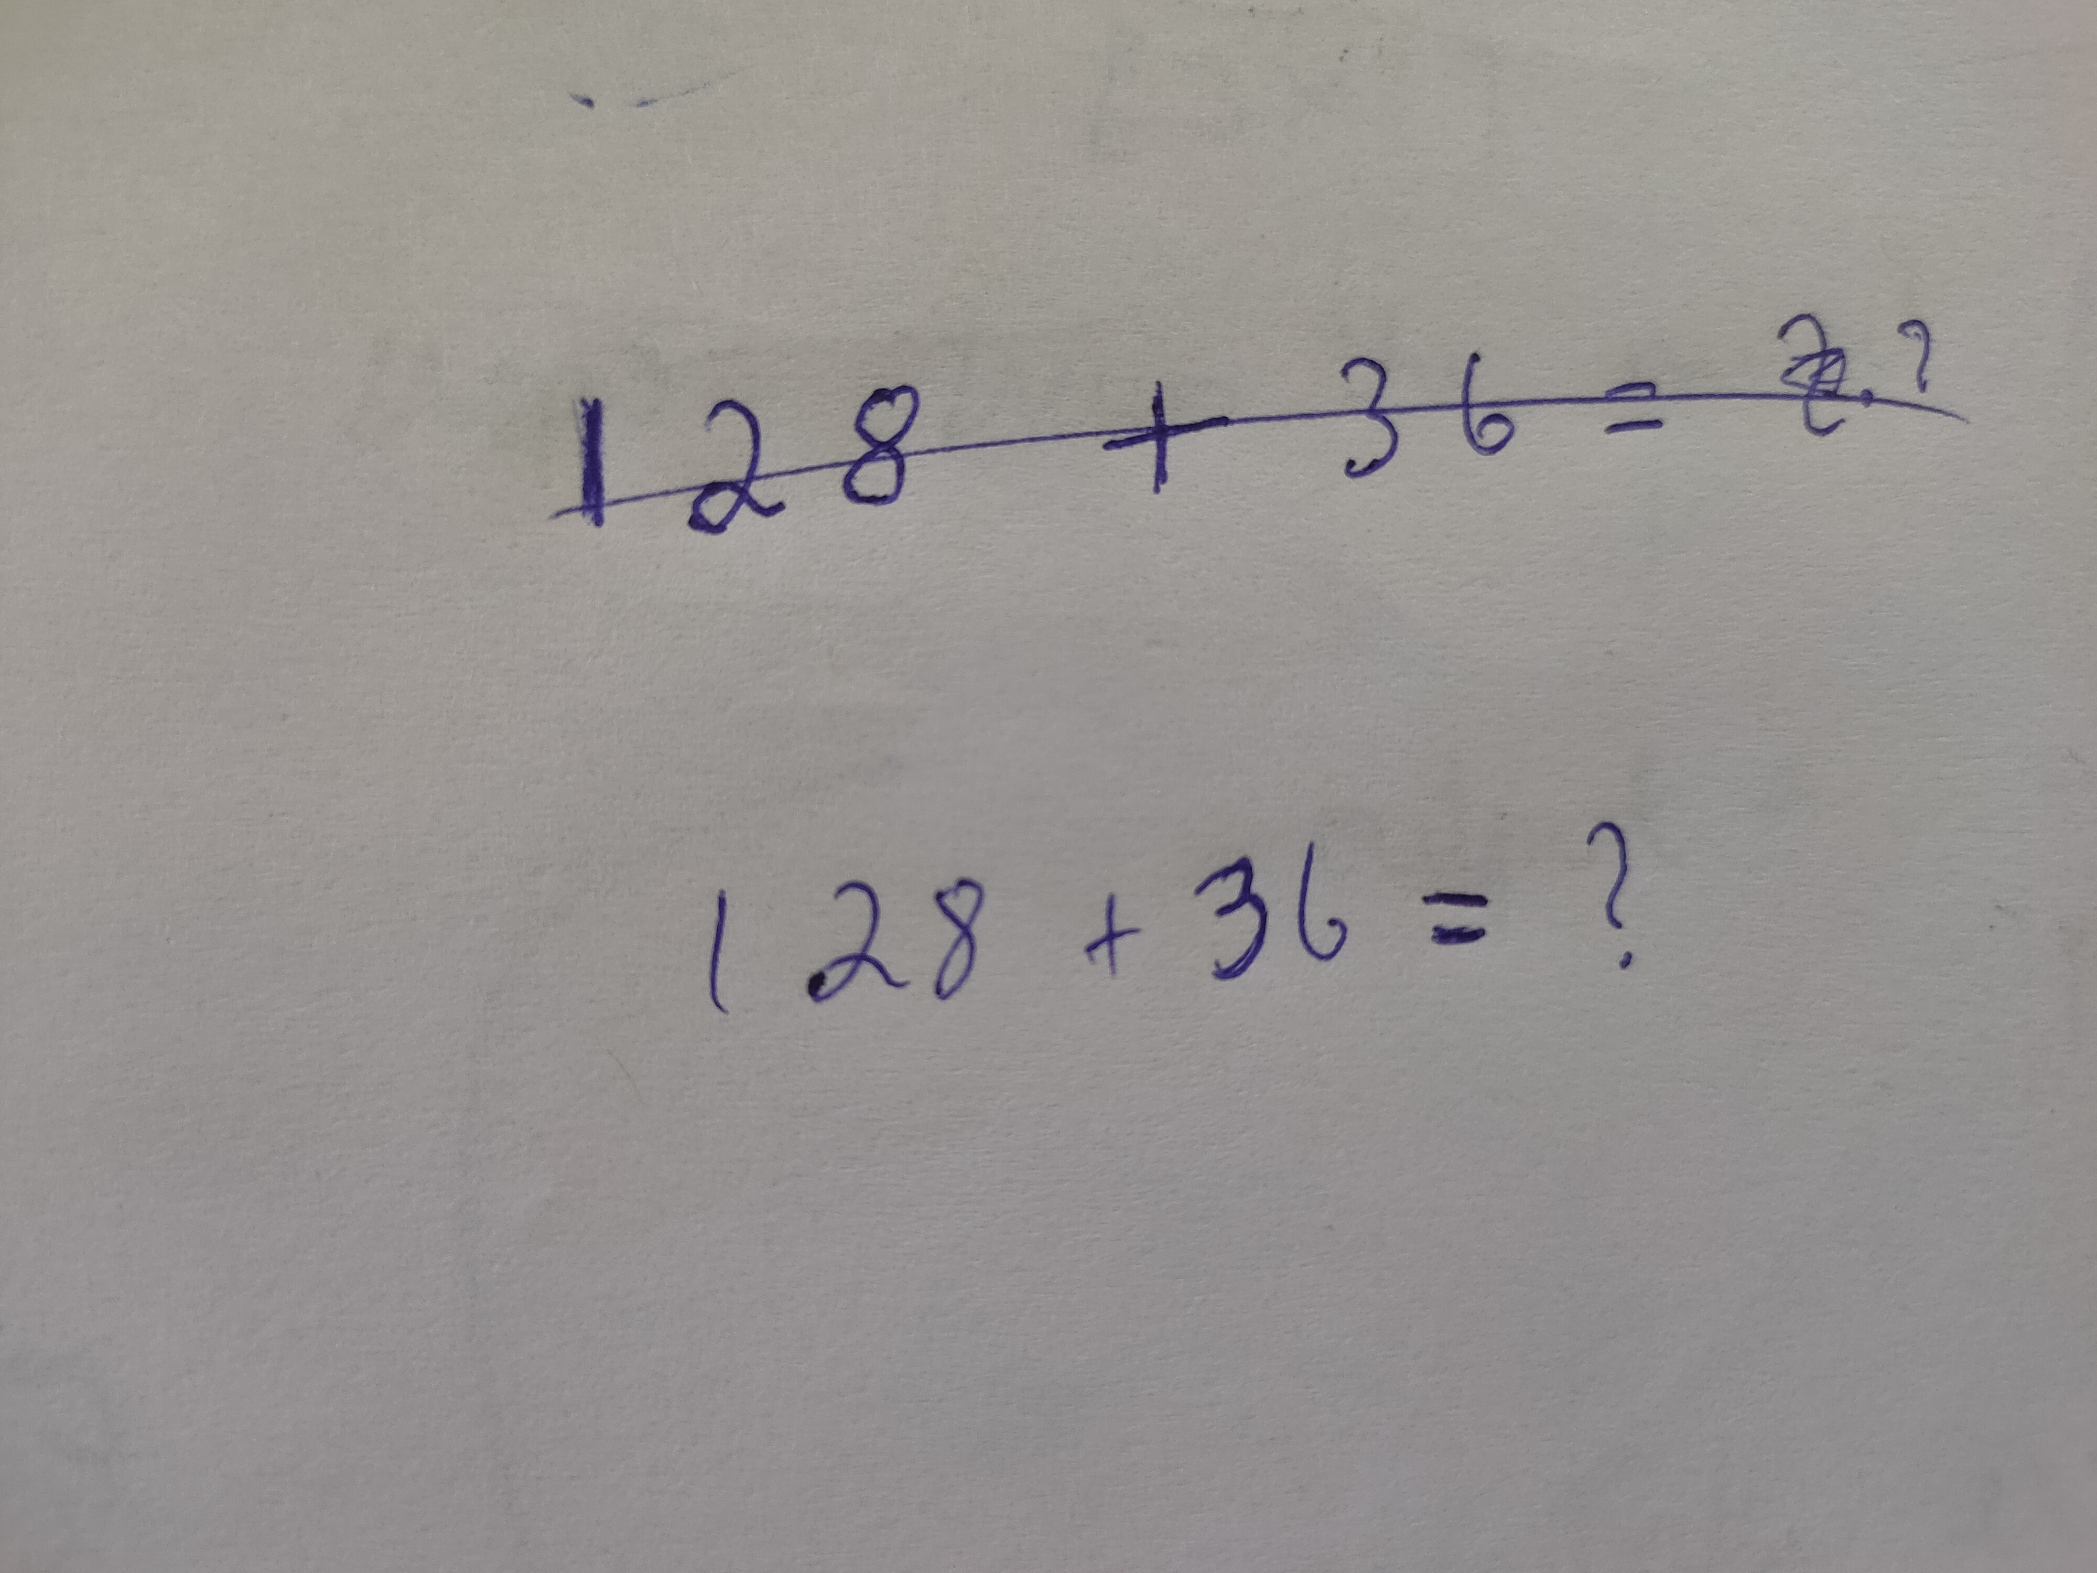 128 + 36 = ?
128 + 36 = ?